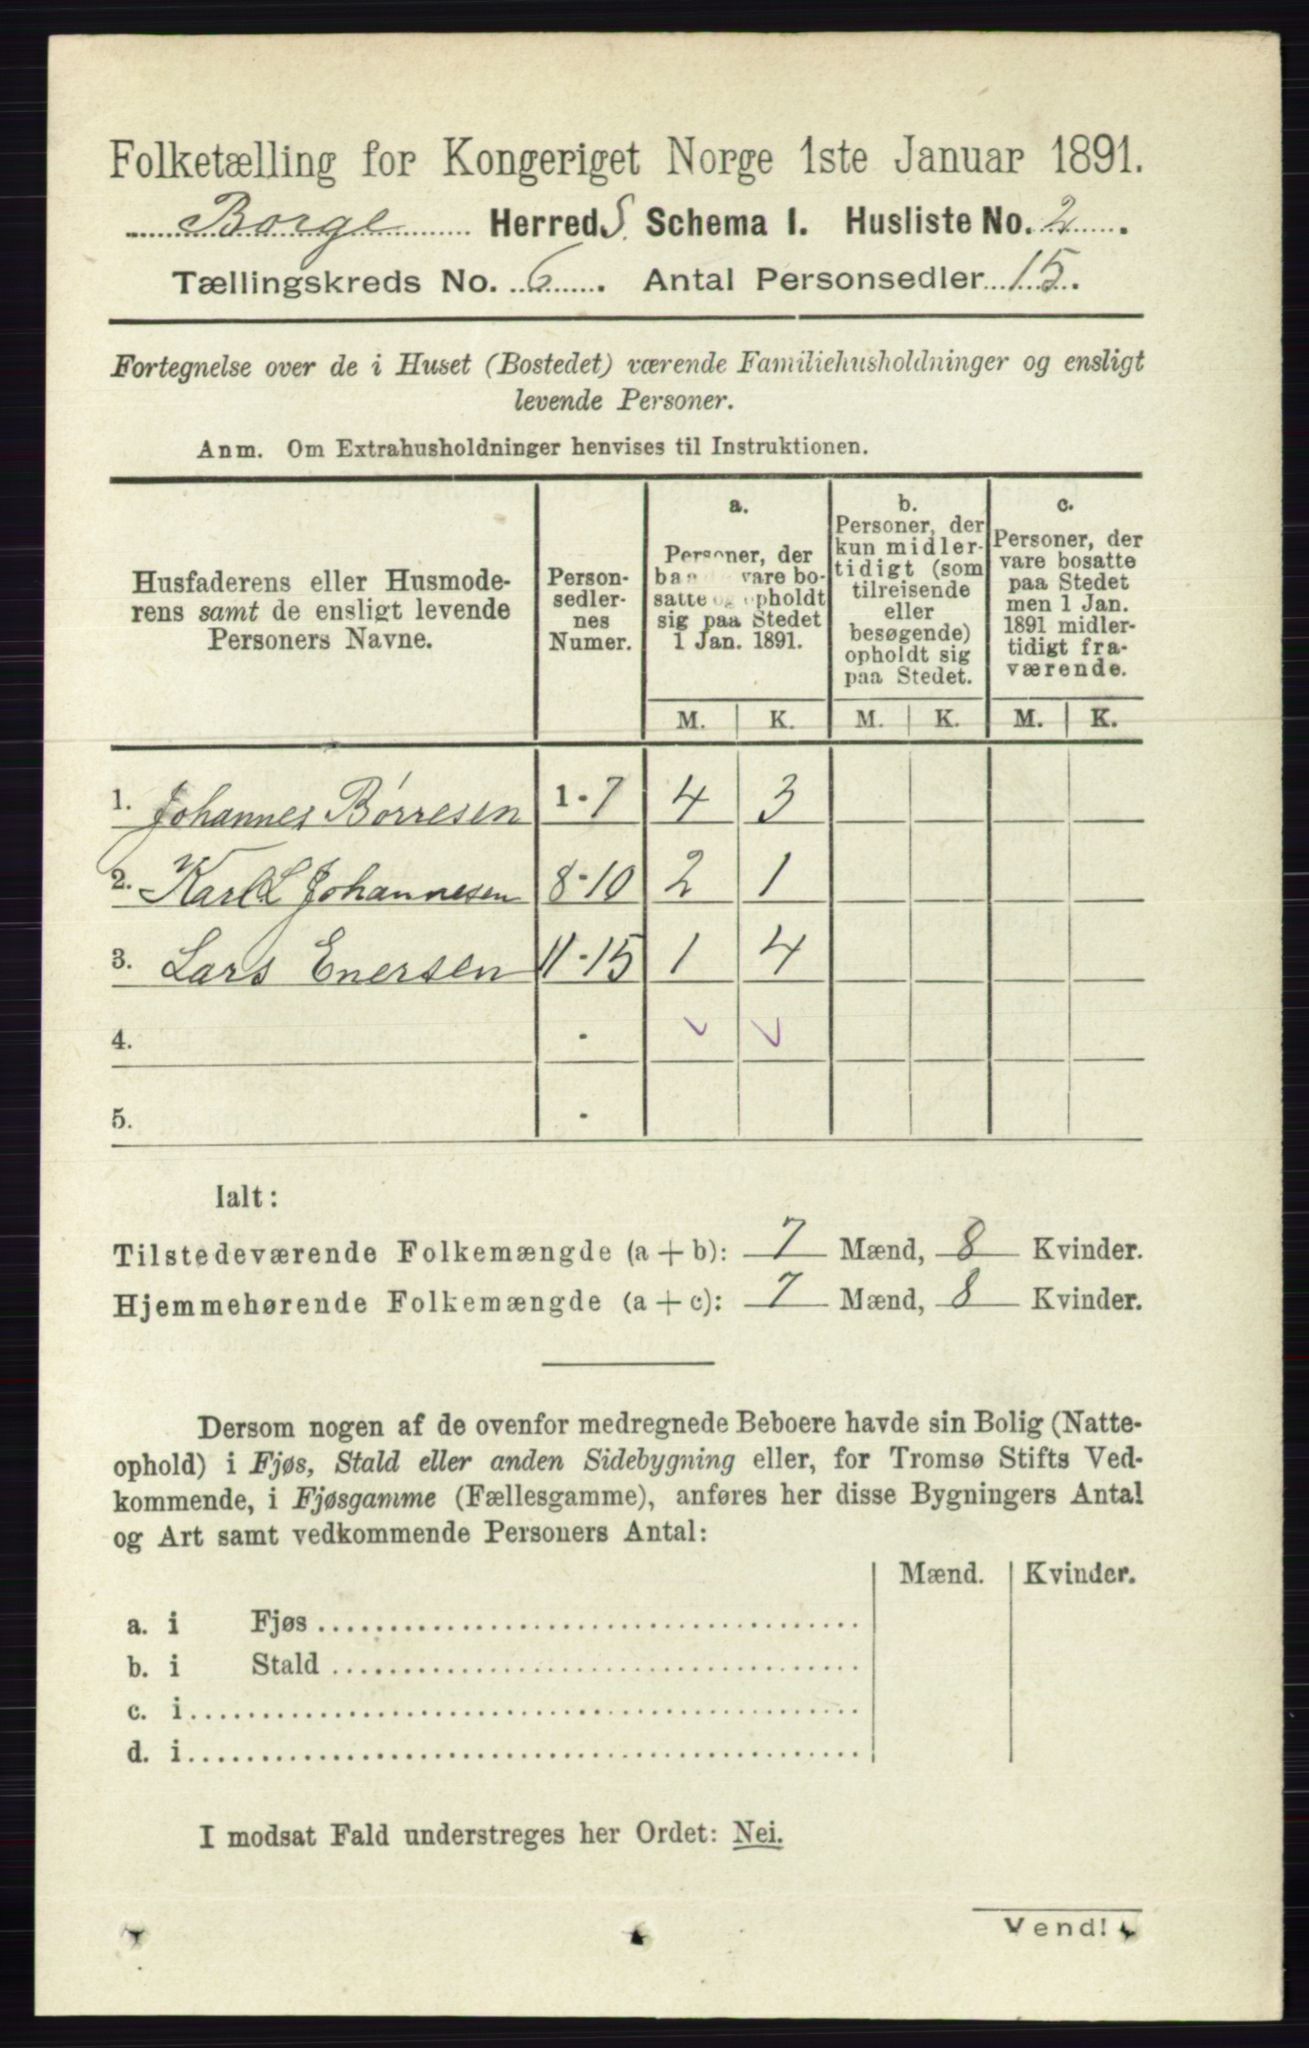 Folketælling for Kongeriget Norge 1ste Januar 1891.
Borge Herred S. Schema I. Husliste No. 2.
Tællingskreds No. 6. Antal Personsedler 15.
Fortegnelse over de i Huset (Bostedet) værende Familiehusholdninger og ensligt
levende Personer.
Anm. Om Extrahusholdninger henvises til Instruktionen.
Husfaderens eller Husmode-
rens samt de ensligt levende
Personers Navne.
Person-
sedler-
nes
Numer.
a.
Personer, der
vare bo-
satte og opholdt
sig paa Stedet
1 Jan. 1891.
b.
Personer, der
kun midler-
tidigt (som
tilreisende
eller
besøgende)
opholdt sig
paa Stedet.
c.
Personer, der
vare bosatte
paa Stedet
men 1 Jan.
1891 midler-
tidigt fra-
værende.
M. K. M. K. M. K.
1. Johannes Børresen 1-7 4 3
2. Karl L Johannesen 8-10 2 1
3. Lars Enersen 11-15 1 4
4. -
5. -
Ialt:
Tilstedeværende Folkemængde (a + b): 7 Mænd, 8 Kvinder.
Hjemmehørende Folkemængde (a + c): 7 Mænd, 8 Kvinder.
Dersom nogen af de ovenfor medregnede Beboere havde sin Bolig (Natte-
ophold) i Fjøs, Stald eller anden Sidebygning eller, for Tromsø Stifts Ved-
kommende, i Fjøsgamme (Fællesgamme), anføres her disse Bygningers Antal
og Art samt vedkommende Personers Antal:
Mænd. Kvinder.
a. i Fjøs
b. i Stald
c. i
d. i
I modsat Fald understreges her Ordet: Nei.
Vend!